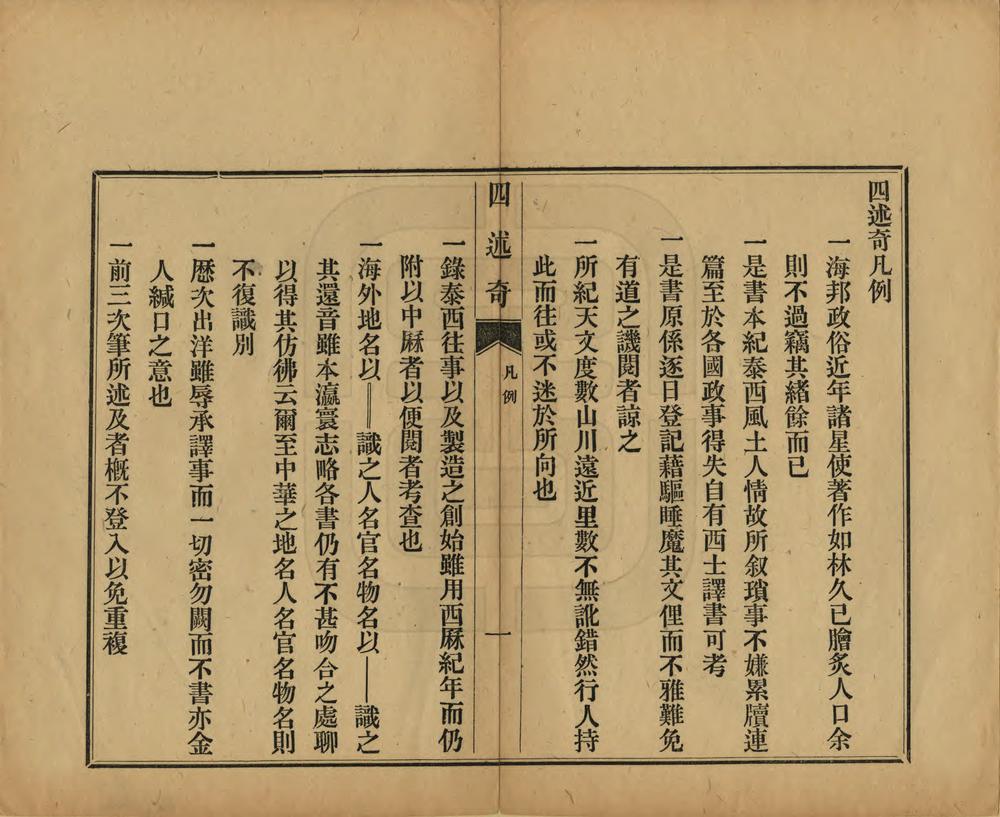 四述奇凡例
一海邦政俗近年諸星使著作如林久已膾炙人口余
則不過竊其緒餘而已
一是書本紀泰西風土人情故所叙瑣事不嫌累牘連
篇至於各國政事得失自有西士譯書可考
一是書原係逐日登記藉驅睡魔其文俚而不雅難免
有道之譏閱者諒之
一所紀天文度數山川遠近里數不無訛錯然行人持
此而往或不迷於所向也
四述奇 凡例 一
一錄泰西往事以及製造之創始雖用西厤紀年而仍
附以中厤者以便閱者考查也
一海外地名以||識之人名官名物名以|識之
其還音雖本瀛寰志略各書仍有不甚吻合之處聊
以得其仿彿云爾至中華之地名人名官名物名則
不復識別
一厯次出洋雖辱承譯事而一切密勿闕而不書亦金
人緘口之意也
一前三次筆所述及者槪不登入以免重複